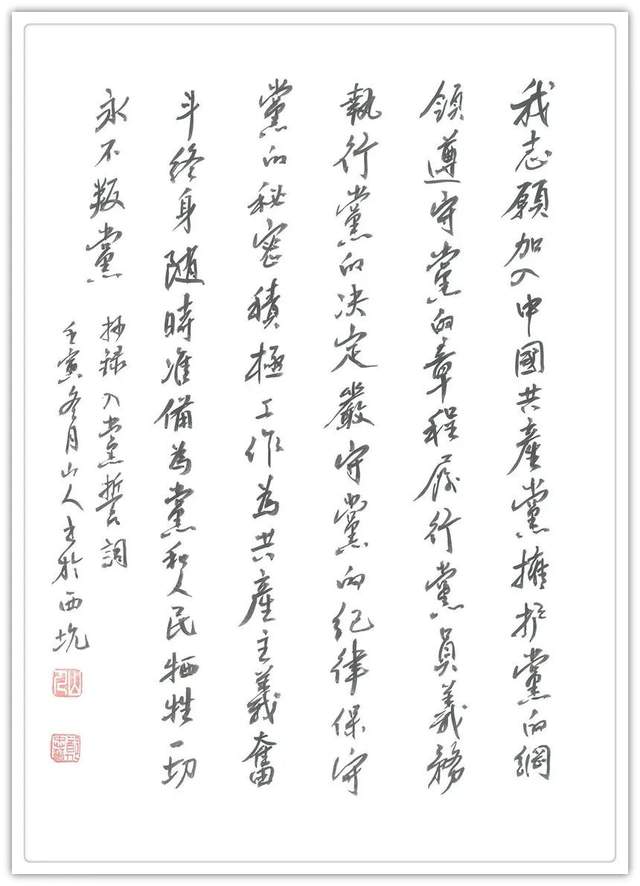 我志願加入中國共產黨擁护黨的綱
領遵守黨的章程履行黨員義務
執行黨的决定嚴守黨的紀律保守
黨的秘密積極工作為共產主義奮
斗終身随時准備為黨和人民牺牲一切
永不叛黨
抄録入黨誓詞
壬寅冬月山人書於西坑